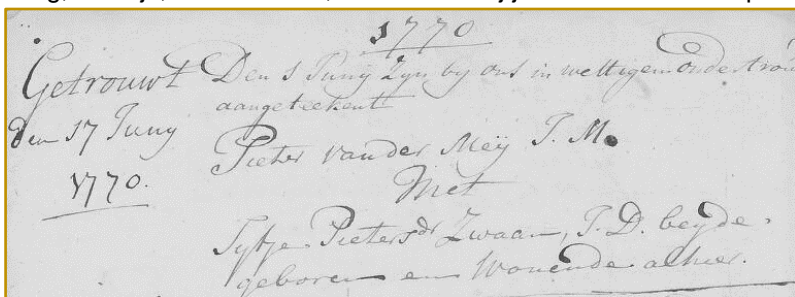 1770
Getrouwt
den 17 Juny
1770.
Den 1 Juny Zyn by ons in wettigem ondertrou
aangeteekent
Pieter van der Meÿ J. M.
Met
Pietersdr Zwaan, J. D. beyde
geboren en Wonende alhier.